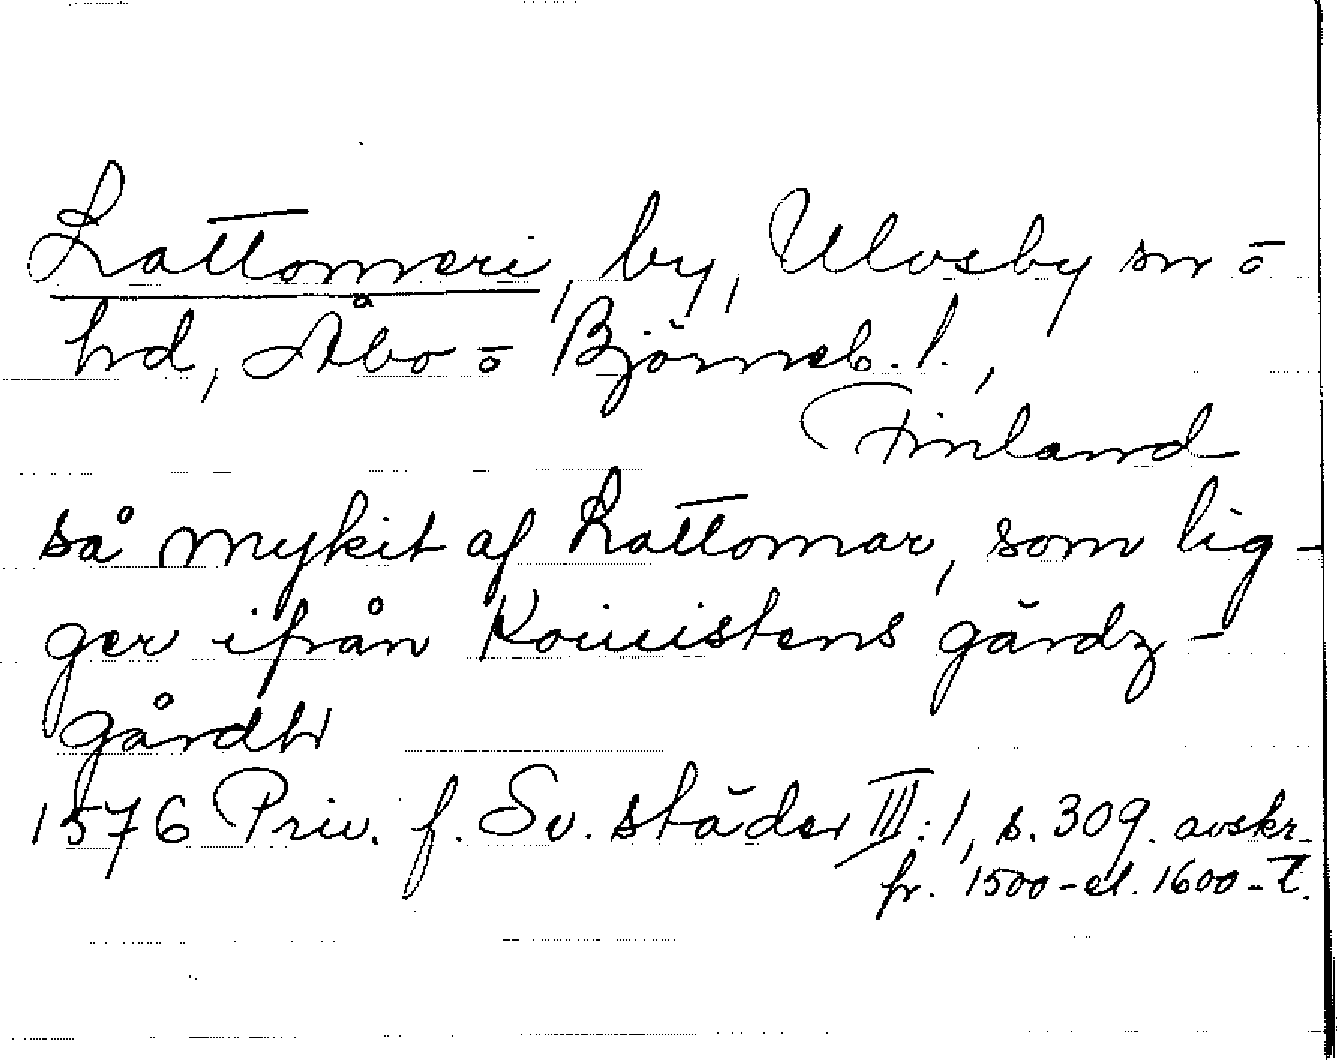 Lattomeri, by, Ulvsby sn o
hd, Åbo o Björneb. l.,
Finland
så mykit af Lattomar, som lig-
ger ifrån Koiuistens gärdz-
gårdh
1576 Priv. f. Sv. städer III:1, s. 309. avskr.
fr. 1500- el. 1600-t.